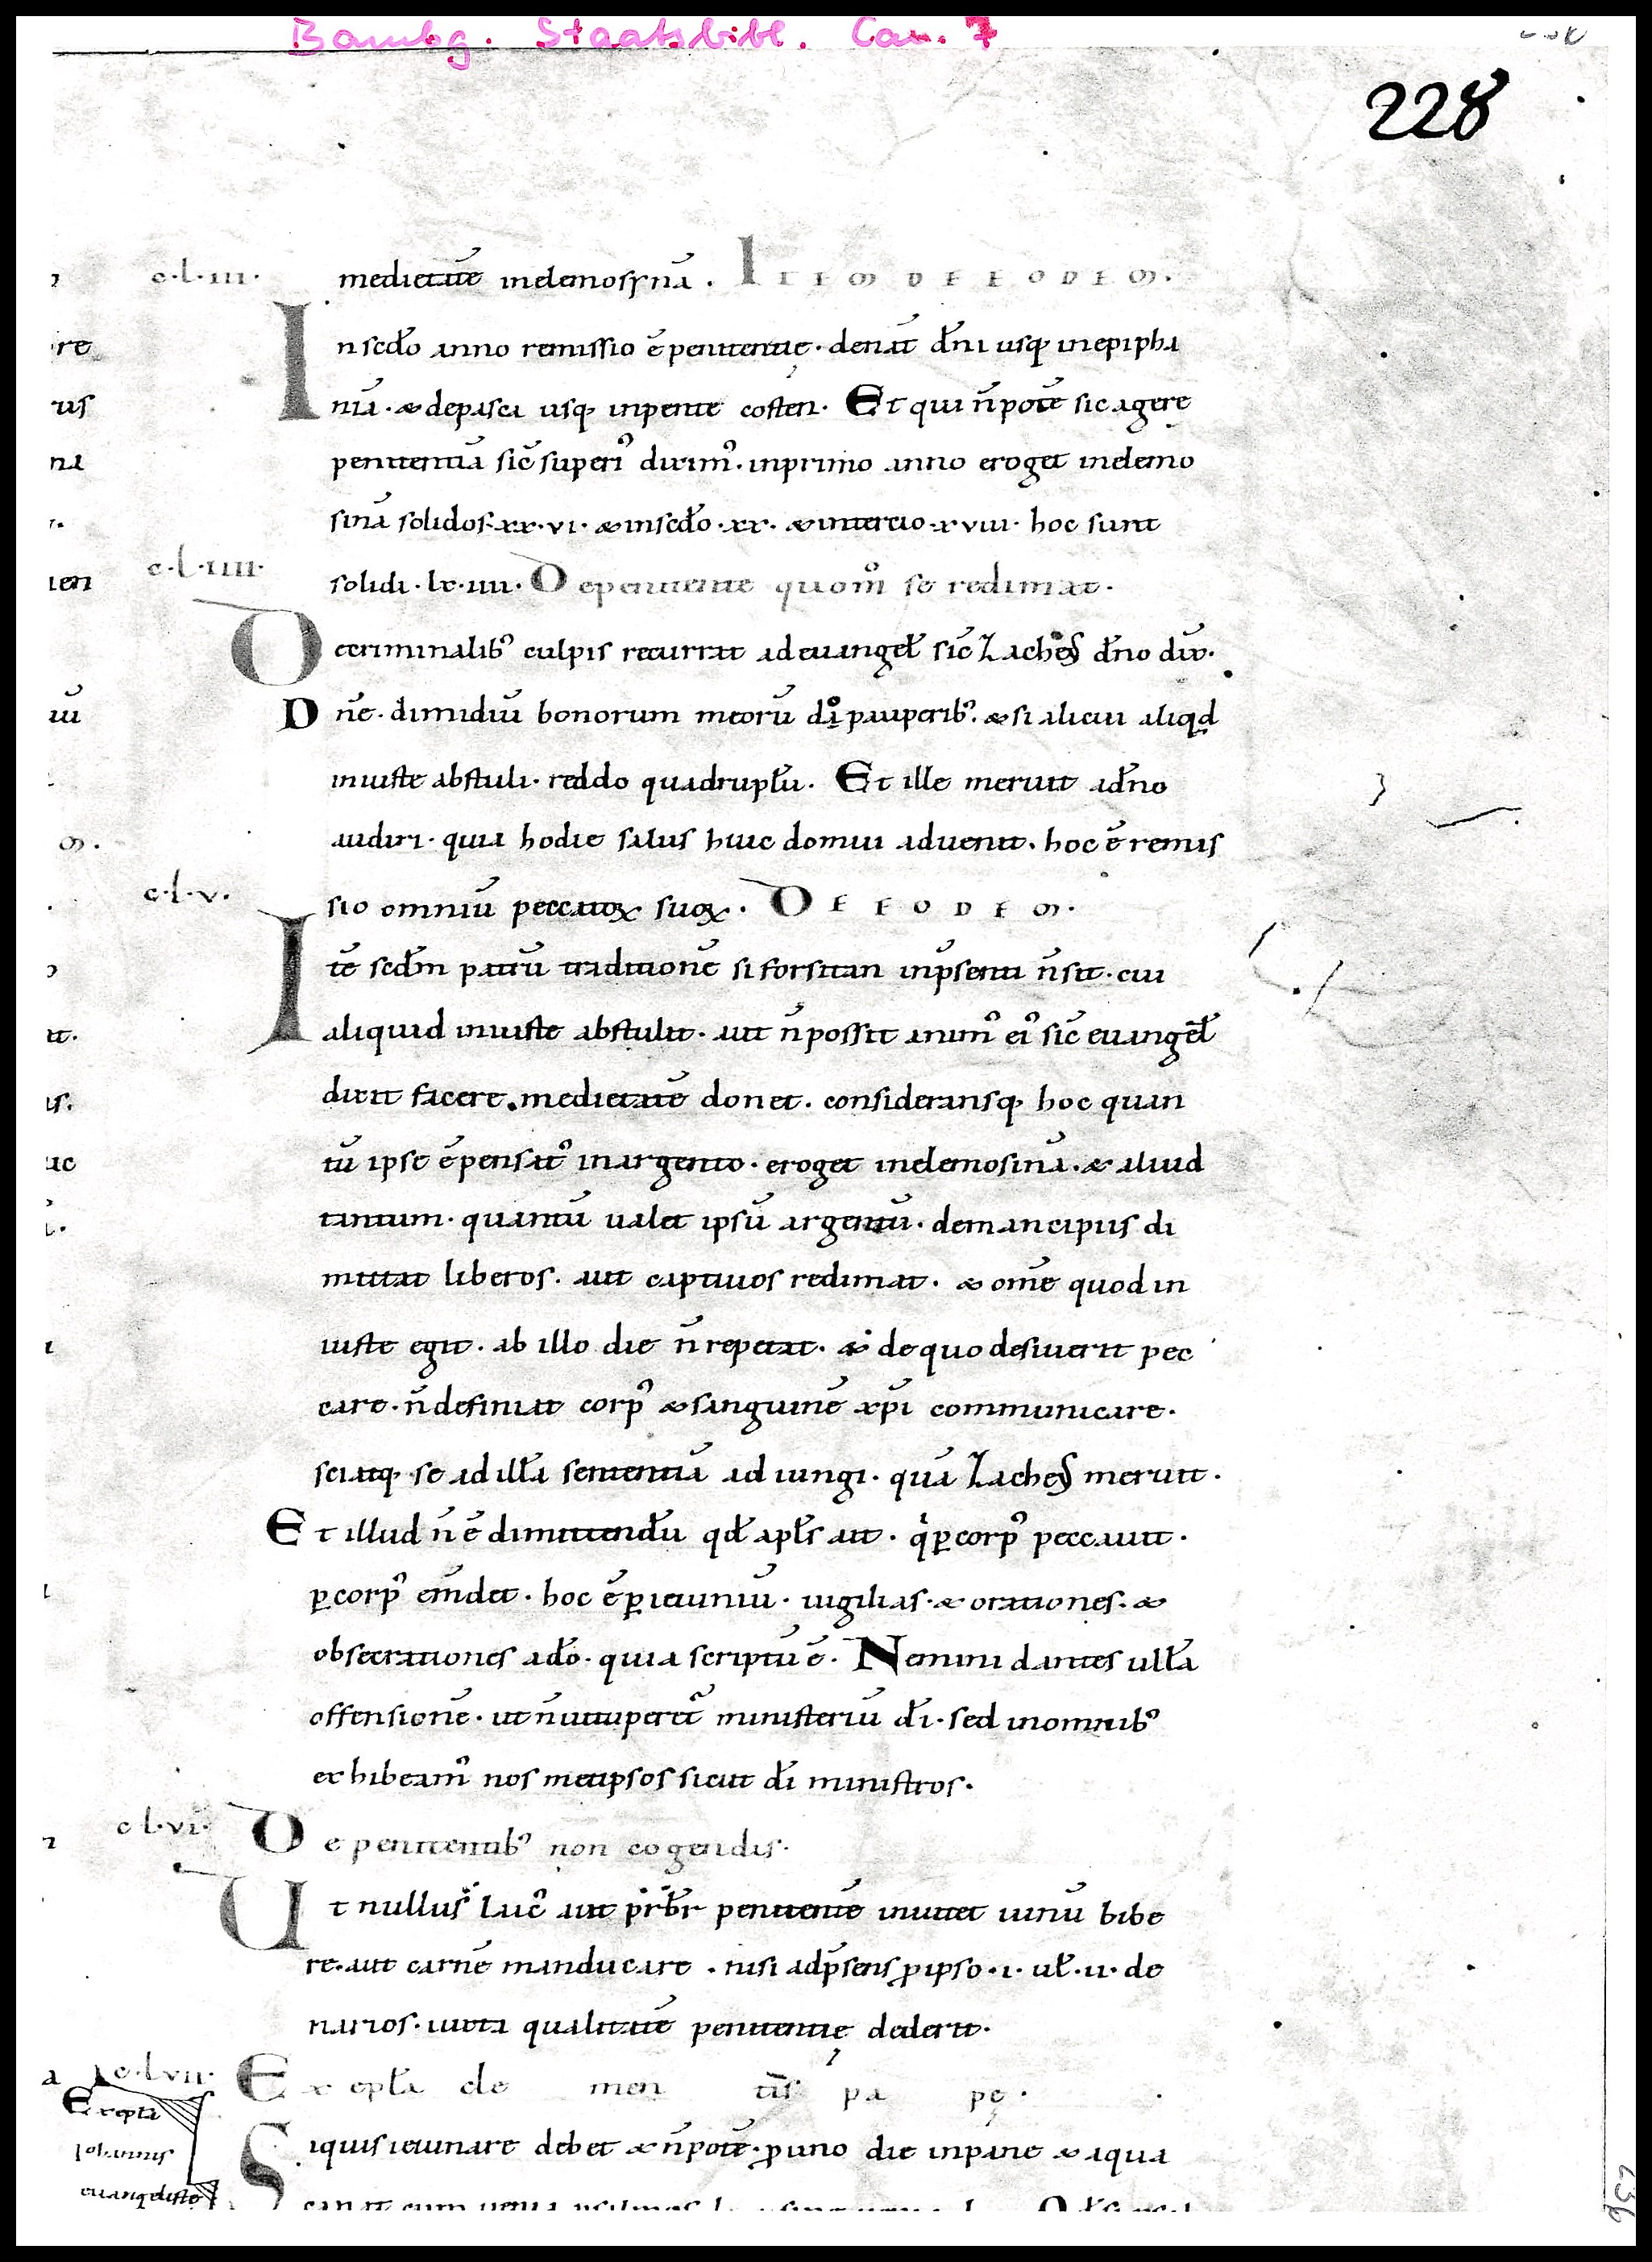 Bambg. Staatsbibl. Can. 7
228
c·l·iii·
medietatē inelemosynā. ITEM DE EODEM.
In scd̄o anno remissio ē penitentię· denat̄ dn̄i usq; inepipha
niā· & depasca usq; inpente costen· Et qui n̄ potē sic agere
penitentiā sic̄ superi᾿ dixim᾿· inprimo anno eroget inelemo
sinā solidos·xx·vi· & inscd̄o·xx· & intercio·xviii· hoc sunt
c·l·iiii·
solidi·lx·iiii· De penitente quom̊ se redimat·
Decriminalib᾿ culpis recurrat adeuangel̄ sic̄ Zacheus dn̄o dix̄·
Dn̄e· dimidiū bonorum meorū do pauperib᾿· & si alicui aliqd
iniuste abstuli· reddo quadruplū· Et ille meruit adn̄o
audiri· quia hodie salus huic domui aduenit· hoc ē remis
c·l·v·
sio omniū peccatoꝝ suoꝝ· DE EODEM·
Itē scdm̄ patrū traditionē si forsitan inp̄senti n̄ sit· cui
aliquid iniuste abstulit· aut n̄ possit anim᾿ ei᾿ sic̄ euangel̄
dixit facere. medietatē donet· consideransq; hoc quan
tū ipse ē pensat᾿ inargento· eroget inelemosinā· & aliud
tantum· quantū ualet ipsū argentū· demancipiis di
mittat liberos· aut captiuos redimat· & om̄e quod in
iuste egit· ab illo die n̄ repetat· & dequo desiuerit pec
care· n̄ definiat corp᾿ & sanguinē xp̄i communicare·
sciatq; se ad illā sententiā ad iungi· quā Zacheus meruit·
Et illud n̄ ē dimittendū qd̄ apl̄s ait· qi ꝑcorp᾿ peccauit·
ꝑcorp᾿ em̄det· hoc ē ꝑ ieiuniū· uigilias· & orationes· &
obsecrationes ad̄o· quia scriptū ē· Nemini dantes ullā
offensionē· ut n̄ uituperet᾿ ministeriū dī· sed inomnib᾿
exhibeam᾿ nos metipsos sicut dī ministros·
c·l·vi·
De penitentib᾿ non cogendis·
Ut nullus laic᾿ aut pr̄br̄ penitentē inuitet uinū bibe
re· aut carnē manducare· nisi adp̄sens ꝓipso·i· ul̄·ii· de
narios· iuxta qualitatē penitentię dederit·
c·l·vii·
Exepl̄a cle men tis̄ pa pę·
Exepla
Iohannis
euangeliste
Siquis ieiunare debet & n̄ potē· ꝓ uno die inpane & aqua